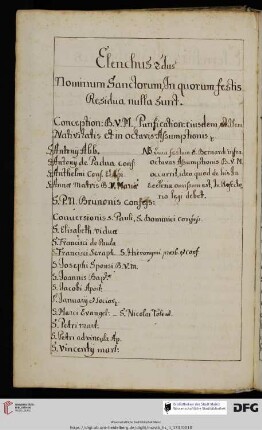 Elenchus 2dus
Nominum Sanctorum, In quorum festis
Residua nulla sunt.
Conception: B.V.M. Purification: eiusdem,
Nativitatis et in octava Assumptionis.
S. Antony Abb.
S. Antony de Padua conf
S. Anthelmi Conf.
S. Annae Matris B.V. Mariae
NB. Cum festum S. Bernardi infra
octavam Assumptionis B.V.M.
occurrit, ideo quod de his in
S.P.N. Brunonis confess:
Conversionis S. Pauli, S. Dominici confess.
S. Elisabeth viduae
S. Francisci de Paula
S. Francisci Seraph. S. Hieronymi conf
S. Josephi Sponsi B.V.M.
S. Joannis Bapt:
S. Jacobi Apost:
S. January et Socior:
S. Marci Evangel: S. Nicolai Tolent.
S. Petri mart:
S. Petri ad vincula Ap.
S. Vincenty mart:
DFG